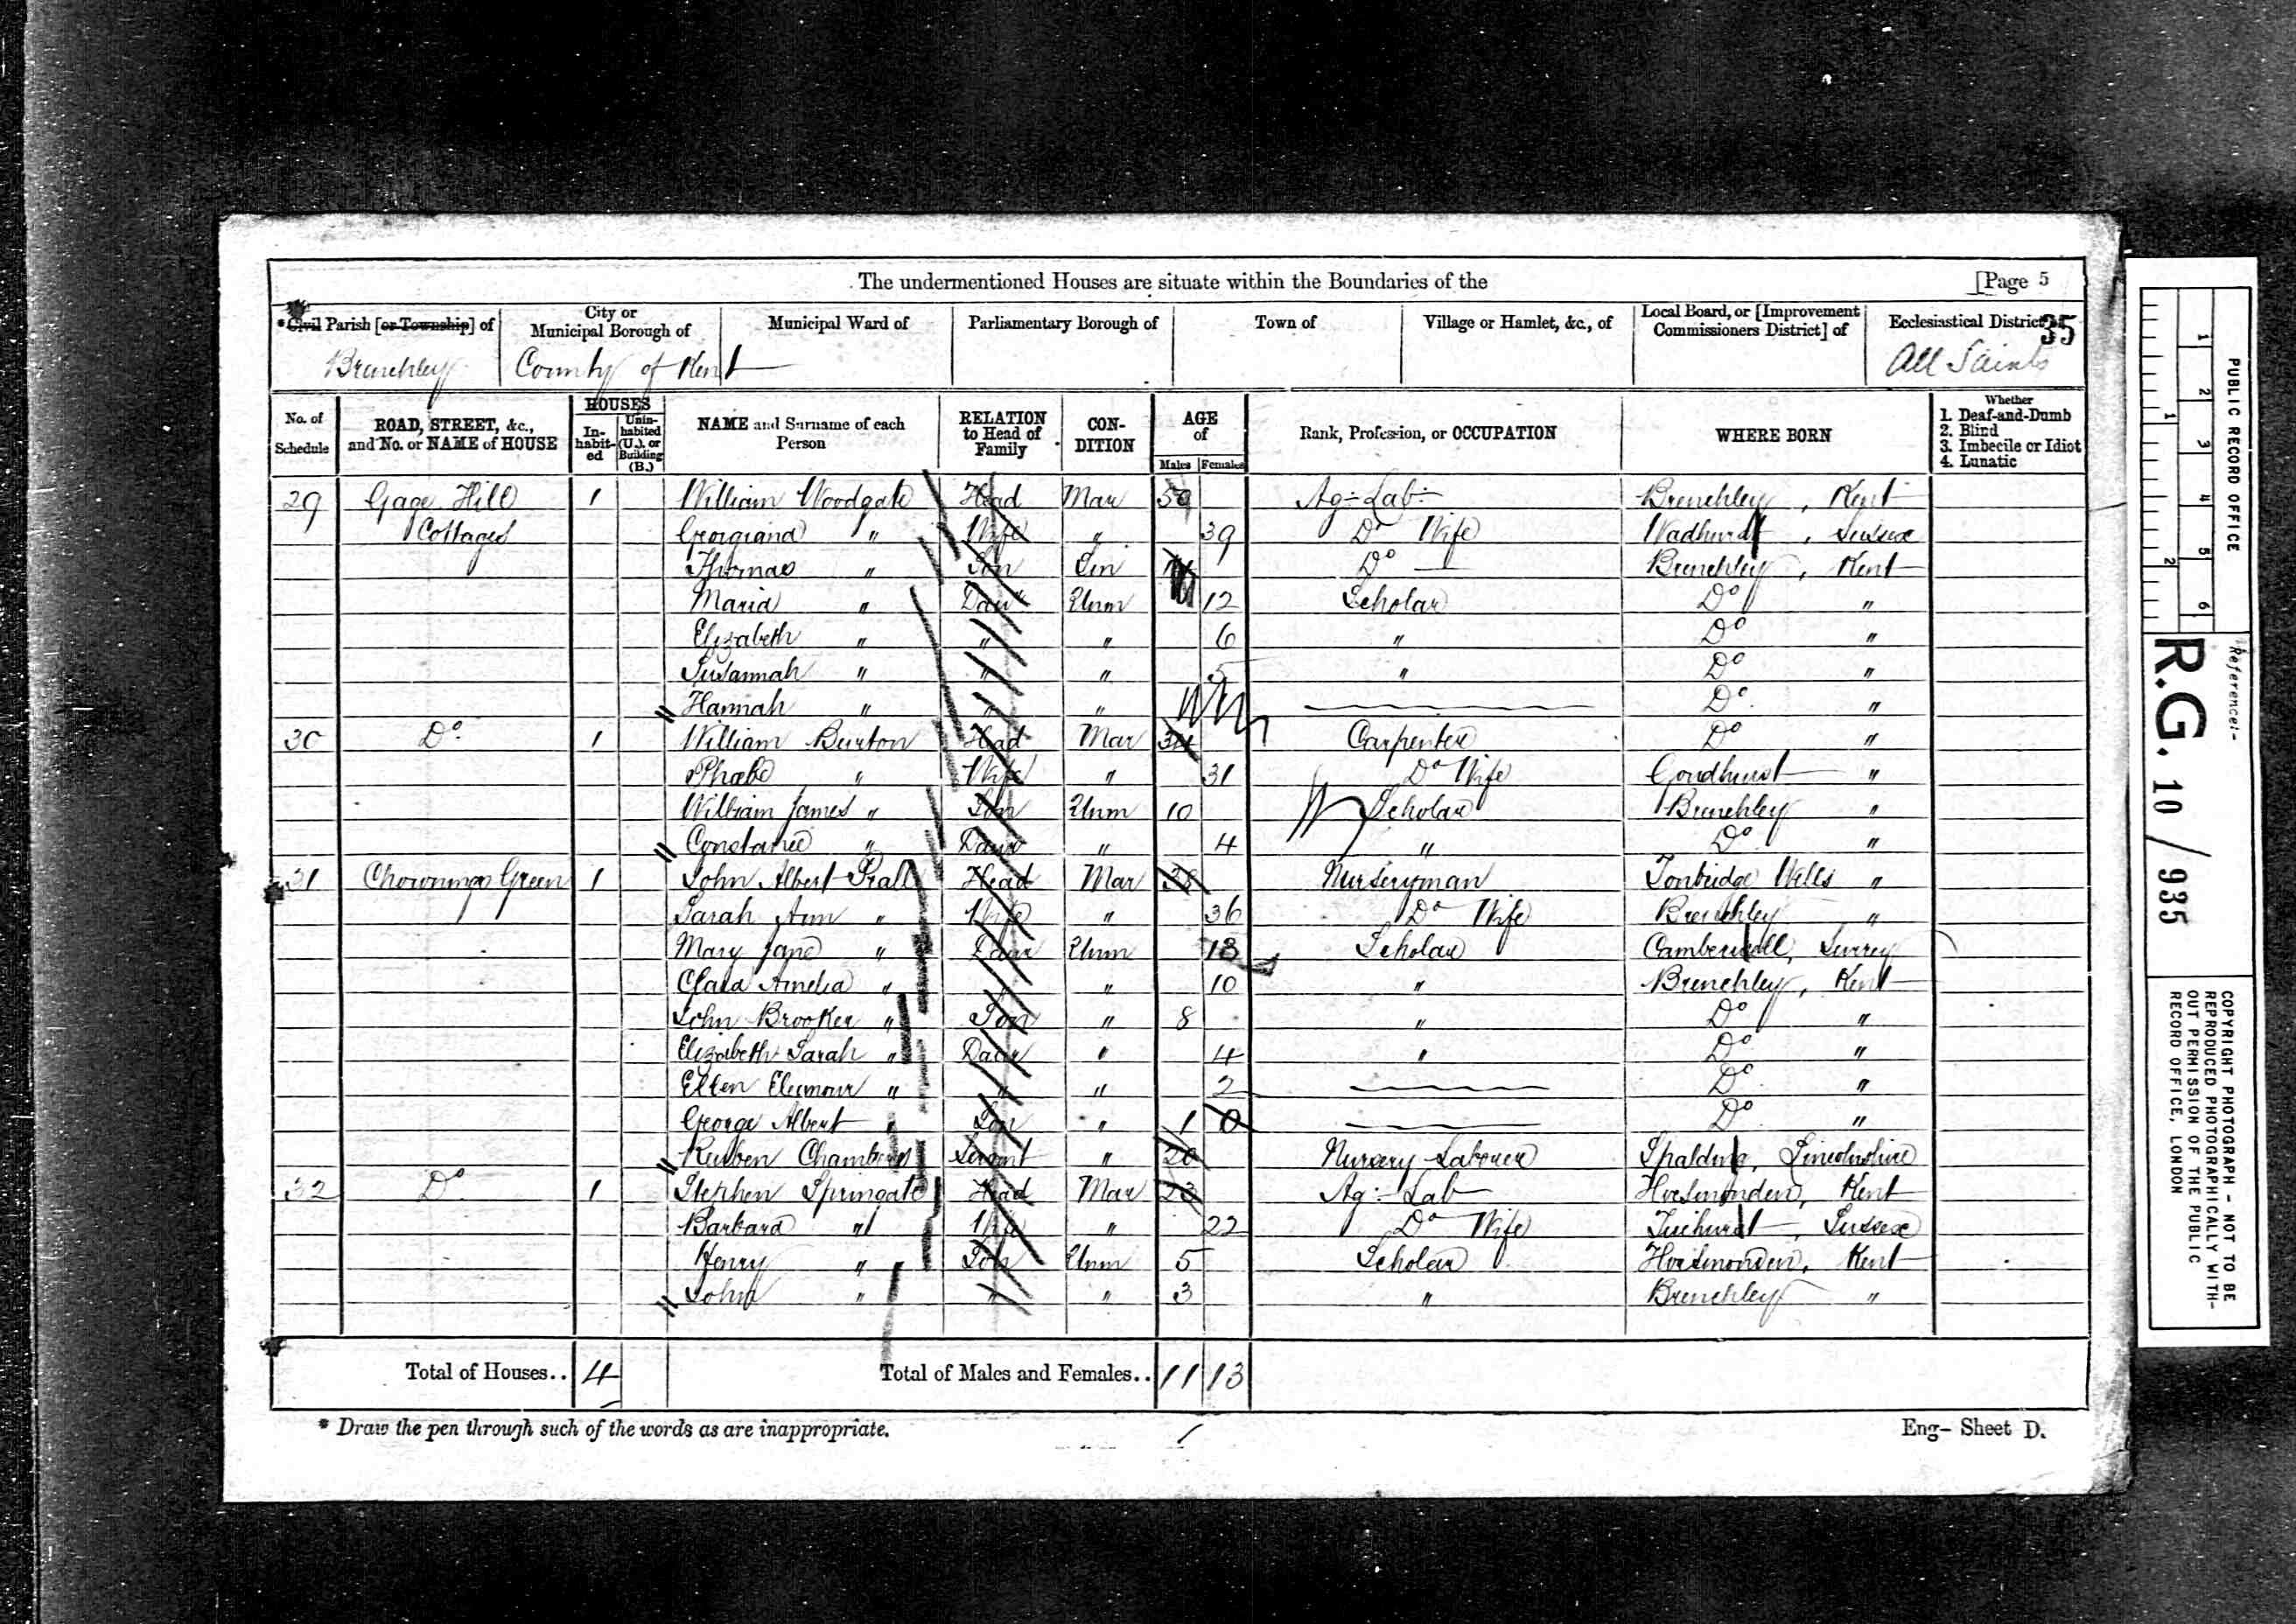 The undermentioned Houses are situate within the Boundaries of the [Page 5
*Civil Parish [or Township] of City or Municipal Borough of Municipal Ward of Parliamentary Borough of Town of Village or Hamlet, &c., of Local Board, or [Improvement Commissioners District] of Ecclesiastical District
35
Brenchley County of Kent All Saints
No. of Schedule ROAD, STREET, &c., and No. or NAME of HOUSE HOUSES Inhabited Uninhabited (U.), or Building (B.) NAME and Surname of each Person RELATION to Head of Family CONDITION AGE of Males Females Rank, Profession, or OCCUPATION WHERE BORN Whether 1. Deaf-and-Dumb 2. Blind 3. Imbecile or Idiot 4. Lunatic
29 Gage Hill 1 William Woodgate Head Mar 50 Ag: Lab: Brenchley, Kent
Cottages Georgiana " Wife " 39 Do Wife Wadhurst, Sussex
Thomas " Son Sin Do Brenchley, Kent
Maria " Daur Unm 12 Scholar Do "
Elizabeth " " " 6 " Do "
Susannah " " " 5 " Do "
Hannah " " " Do "
30 Do 1 William Burton Head Mar 34 Carpenter Do "
Phabe " Wife " 31 Do Wife Goudhurst "
William James " Son Unm 10 Scholar Brenchley "
Constance " Daur " 4 " Do "
31 Chownings Green 1 John Albert Prall Head Mar 38 Nurseryman Tonbridge Wells "
Sarah Ann " Wife " 36 Do Wife Brenchley "
Mary Jane " Daur Unm 13 Scholar Camberwell, Surrey
Clara Amelia " " " 10 " Brenchley, Kent
John Brooker " Son " 8 " Do "
Elizabeth Sarah " Daur " 4 " Do "
Ellen " " " 2 Do "
George Albert " Son " 1 0 Do "
Reuben Chambers Servant " 20 Nursery Labourer Spalding, Lincolnshire
32 Do 1 Stephen Springate Head Mar 23 Ag: Lab Horsmonden, Kent
Barbara " Wife " 22 Do Wife Ticehurst, Sussex
Henry " Son Unm 5 Scholar Horsmonden, Kent
John " " " 3 " Brenchley "
Total of Houses.. 4 Total of Males and Females.. 11 13
* Draw the pen through such of the words as are inappropriate. Eng- Sheet D.
PUBLIC RECORD OFFICE
1 2 3 4 5 6
1 2
Reference:-
R.G. 10/935
COPYRIGHT PHOTOGRAPH - NOT TO BE
REPRODUCED PHOTOGRAPHICALLY WITH-
OUT PERMISSION OF THE PUBLIC
RECORD OFFICE, LONDON